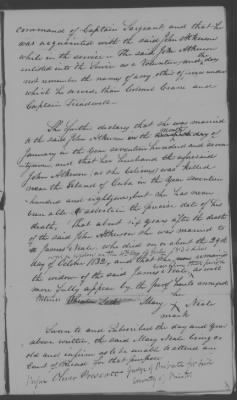 command of Captain Sargeant and that he
was acquainted with the said John Atkinson
while in the service - The said John Atkinson
enlisted into the Service as a Volunteer, and she does
not remember the names of any other officers under
which he served, than Colonel Crane and
Captain Treadwell -
She further declares that she was married
to the said John Atkinson in the month of
January in the year seventeen hundred and seventy
seven and that her husband the aforesaid
John Atkinson (as she believes) was killed
near the Island of Cuba in the year seventeen
hundred and eighty five but she has never
been able to ascertain the precise date of his
death, that about six years after the death
of the said John Atkinson she was married to
James Neale who died on or about the 29th
day of October 1832, and that she remains
the widow of the said James Neale, as will
more fully appear by the proof hereto annexed
Witness
her
Mary X Neale
mark
Sworn to and subscribed the day and year
above written, the said Mary Neale being so
old and infirm as to be unable to attend any
Court of Record for that purpose
Before Oliver Prescott Judge of Probate for said
County of